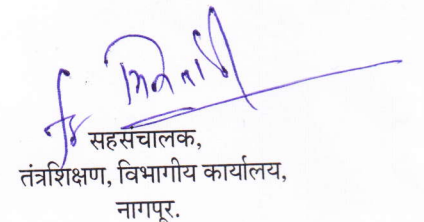 सहसंचालक,
तंत्रशिक्षण, विभागीय कार्यालय,
नागपूर.